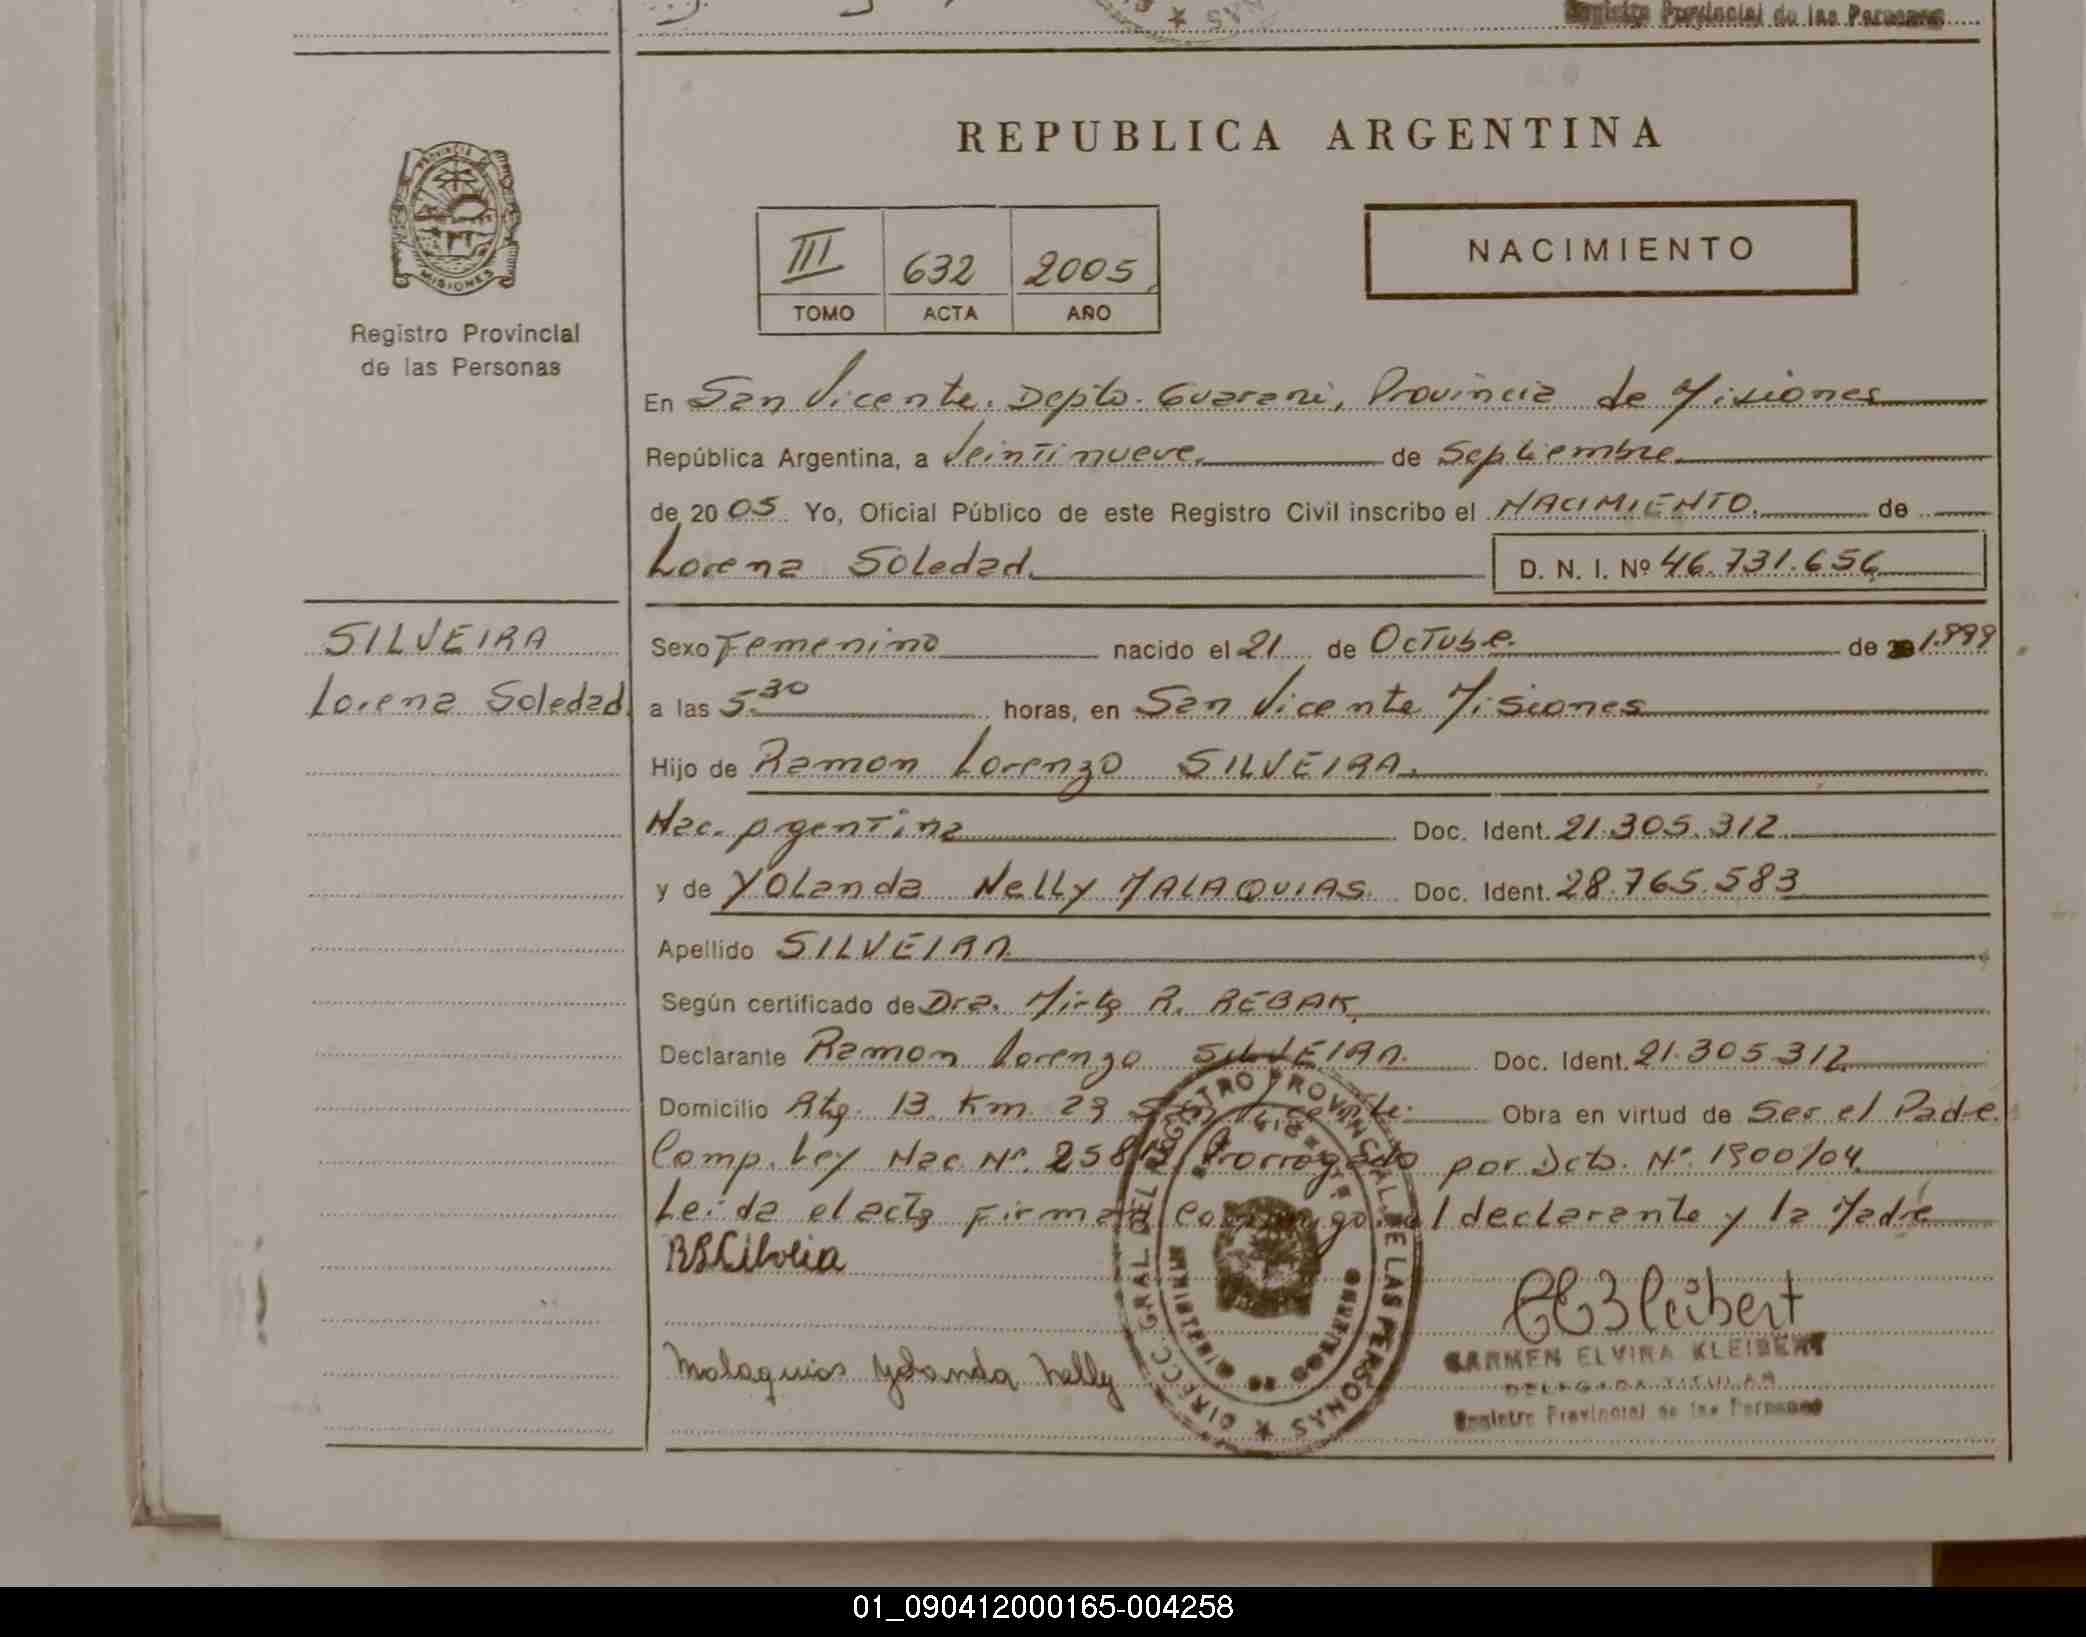 Registro Provincial de las Personas
PROVINCIA DE
MISIONES
Registro Provincial
de las Personas
REPUBLICA ARGENTINA
III 632 2005
TOMO ACTA AÑO
NACIMIENTO
En San Vicente. Depto. Guarani, Provincia de Misiones
República Argentina, a Veintinueve de Septiembre
de 2005 Yo, Oficial Público de este Registro Civil inscribo el NACIMIENTO. de
Lorena Soledad D. N. I. Nº 46.731.656
SILVEIRA
Lorena Soledad
Sexo Femenino nacido el 21 de Octube. de 1.999
a las 5.30 horas, en San Vicente Misiones
Hijo de Ramon Lorenzo SILVEIRA.
Nac. Argentina Doc. Ident. 21.305.312
y de Yolanda Nelly MALAQUIAS Doc. Ident. 28.765.583
Apellido SILVEIRA
Según certificado de Dra. Mirta R. REBAK
Declarante Ramon Lorenzo SILVEIRA. Doc. Ident. 21.305.312
Domicilio Km 29 San Vicente. Obra en virtud de Ser el Padre.
Comp. Ley Nac Nº. Prorrogado por Dcto. Nº. 1900/04
Leida el acta firman conmigo el declarante y la Madre
Malaquias Yolanda Nelly
DIRECC. GRAL DEL REGISTRO PROVINCIAL DE LAS PERSONAS
CARMEN ELVIRA KLEIBERT
DELEGADA TITULAR
Registro Provincial de las Personas
01_090412000165-004258